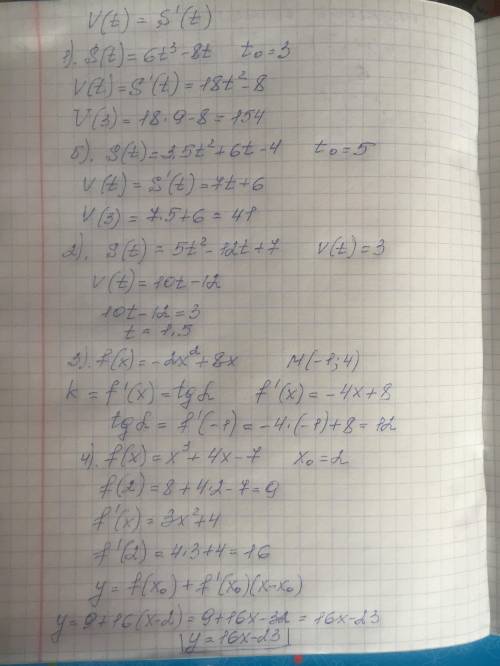 V(t) = S'(t)
1). S(t)=6t³-8t t₀=3
V(t)=S'(t)=18t²-8
V(3)=18·9-8=154
б). S(t)=3,5t²+6t-4 t₀=5
V(t)=S'(t)=7t+6
V(3)=7·5+6=41
2). S(t)=5t²-12t+7 V(t)=3
V(t)=10t-12
10t-12=3
t=1,5
3). f(x)=-2x²+8x M(-1;4)
k=f'(x)=tgα f'(x)=-4x+8
tgα=f'(-1)=-4·(-1)+8=12
4). f(x)=x³+4x-7 x₀=2
f(2)=8+4·2-7=9
f'(x)=3x²+4
f'(2)=4·3+4=16
y=f(x₀)+f'(x₀)(x-x₀)
y=9+16(x-2)=9+16x-32=16x-23
|y=16x-23|